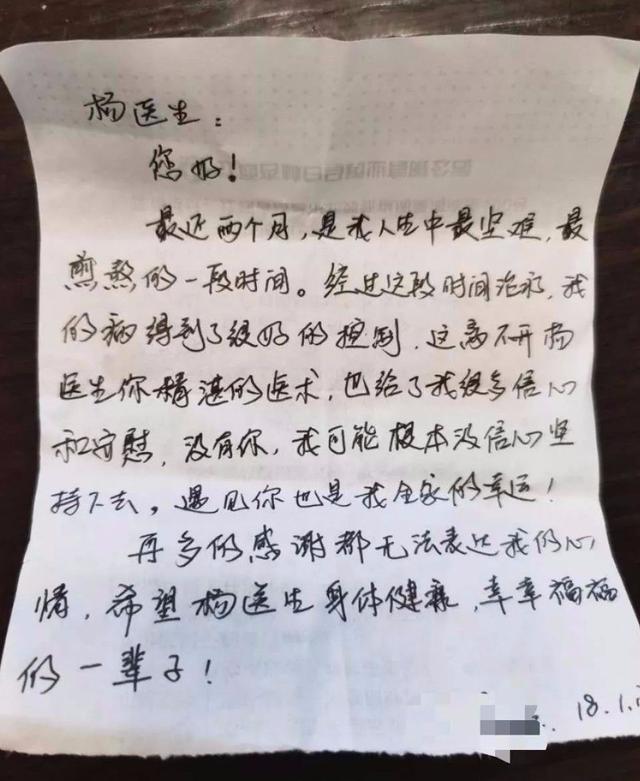 杨医生：
您好！
最近两个月，是我人生中最坚难，最
煎熬的一段时间。经过这段时间治疗，我
的病得到了很好的控制，这离不开杨
医生你精湛的医术，也给了我很多信心
和安慰，没有你，我可能根本没信心坚
持下去，遇见你也是我全家的幸运！
再多的感谢都无法表达我的心
情，希望杨医生身体健康，幸幸福福
的一辈子！
18.1.